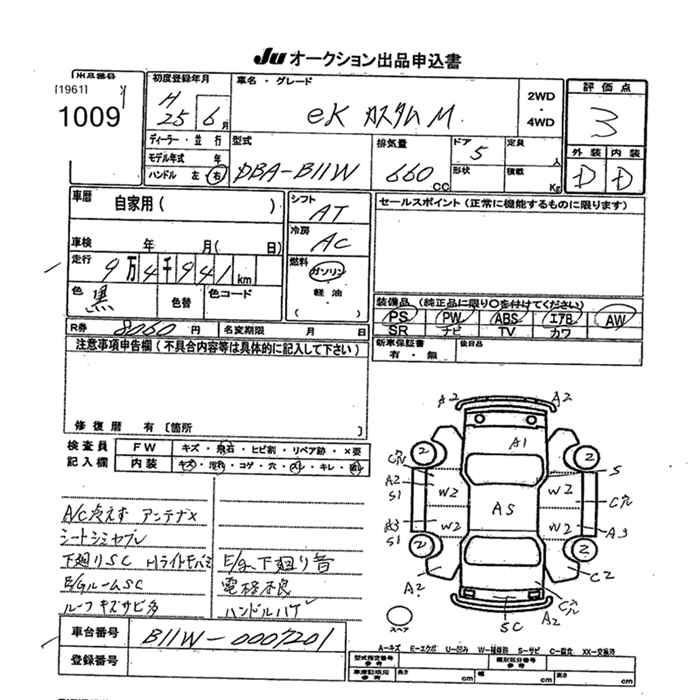 Ju オークション出品申込書
出品番号
[1961]
1009
初度登録年月
H
25 6月
車名・グレード
eK カスタム M
2WD
・
4WD
評価点
3
外装 内装
D D
ディーラー・並行
モデル年式 年
ハンドル 左 右
型式
DBA-B11W
排気量
660 CC
ドア 5
形状
定員 人
積載 Kg
車歴 自家用( )
車検 年 月( 日)
走行 9万4千941 km
色 黒 色替 色コード
シフト
AT
冷房
AC
燃料
ガソリン
・
軽油
( )
セールスポイント(正常に機能するものに限ります)
装備品(純正品に限り○を付けてください)
PS PW ABS エアB AW
SR ナビ TV カワ
新車保証書 後日品
有・無
R券 8060 円 名変期限 月 日
注意事項申告欄(不具合内容等は具体的に記入して下さい)
修復歴 有[箇所 ]
検査員
記入欄
FW キズ・飛石・ヒビ割・リペア跡・×要
内装 キズ・汚れ・コゲ・穴・スレ・キレ・
A/C冷えず アンテナX
シートシミヤブレ
下廻りSC
E/gルームSC
ルーフキズサビ多
E/g、下廻り音
電格不良
ハンドルハゲ
A2 A2
2 A1 2
A2
S1 W2 W2 S
A5
A3
S1 W2 W2 A3
2 2
A2 C2
SC A2
スペア
A-キズ E-エクボ U-凹み W-補修跡 S-サビ C-腐食 XX-交換済
車台番号 B11W-0007201
登録番号
型式指定番号 参考 類別区分番号 参考
車庫証明用 参考 長さ cm 幅 cm 高さ cm